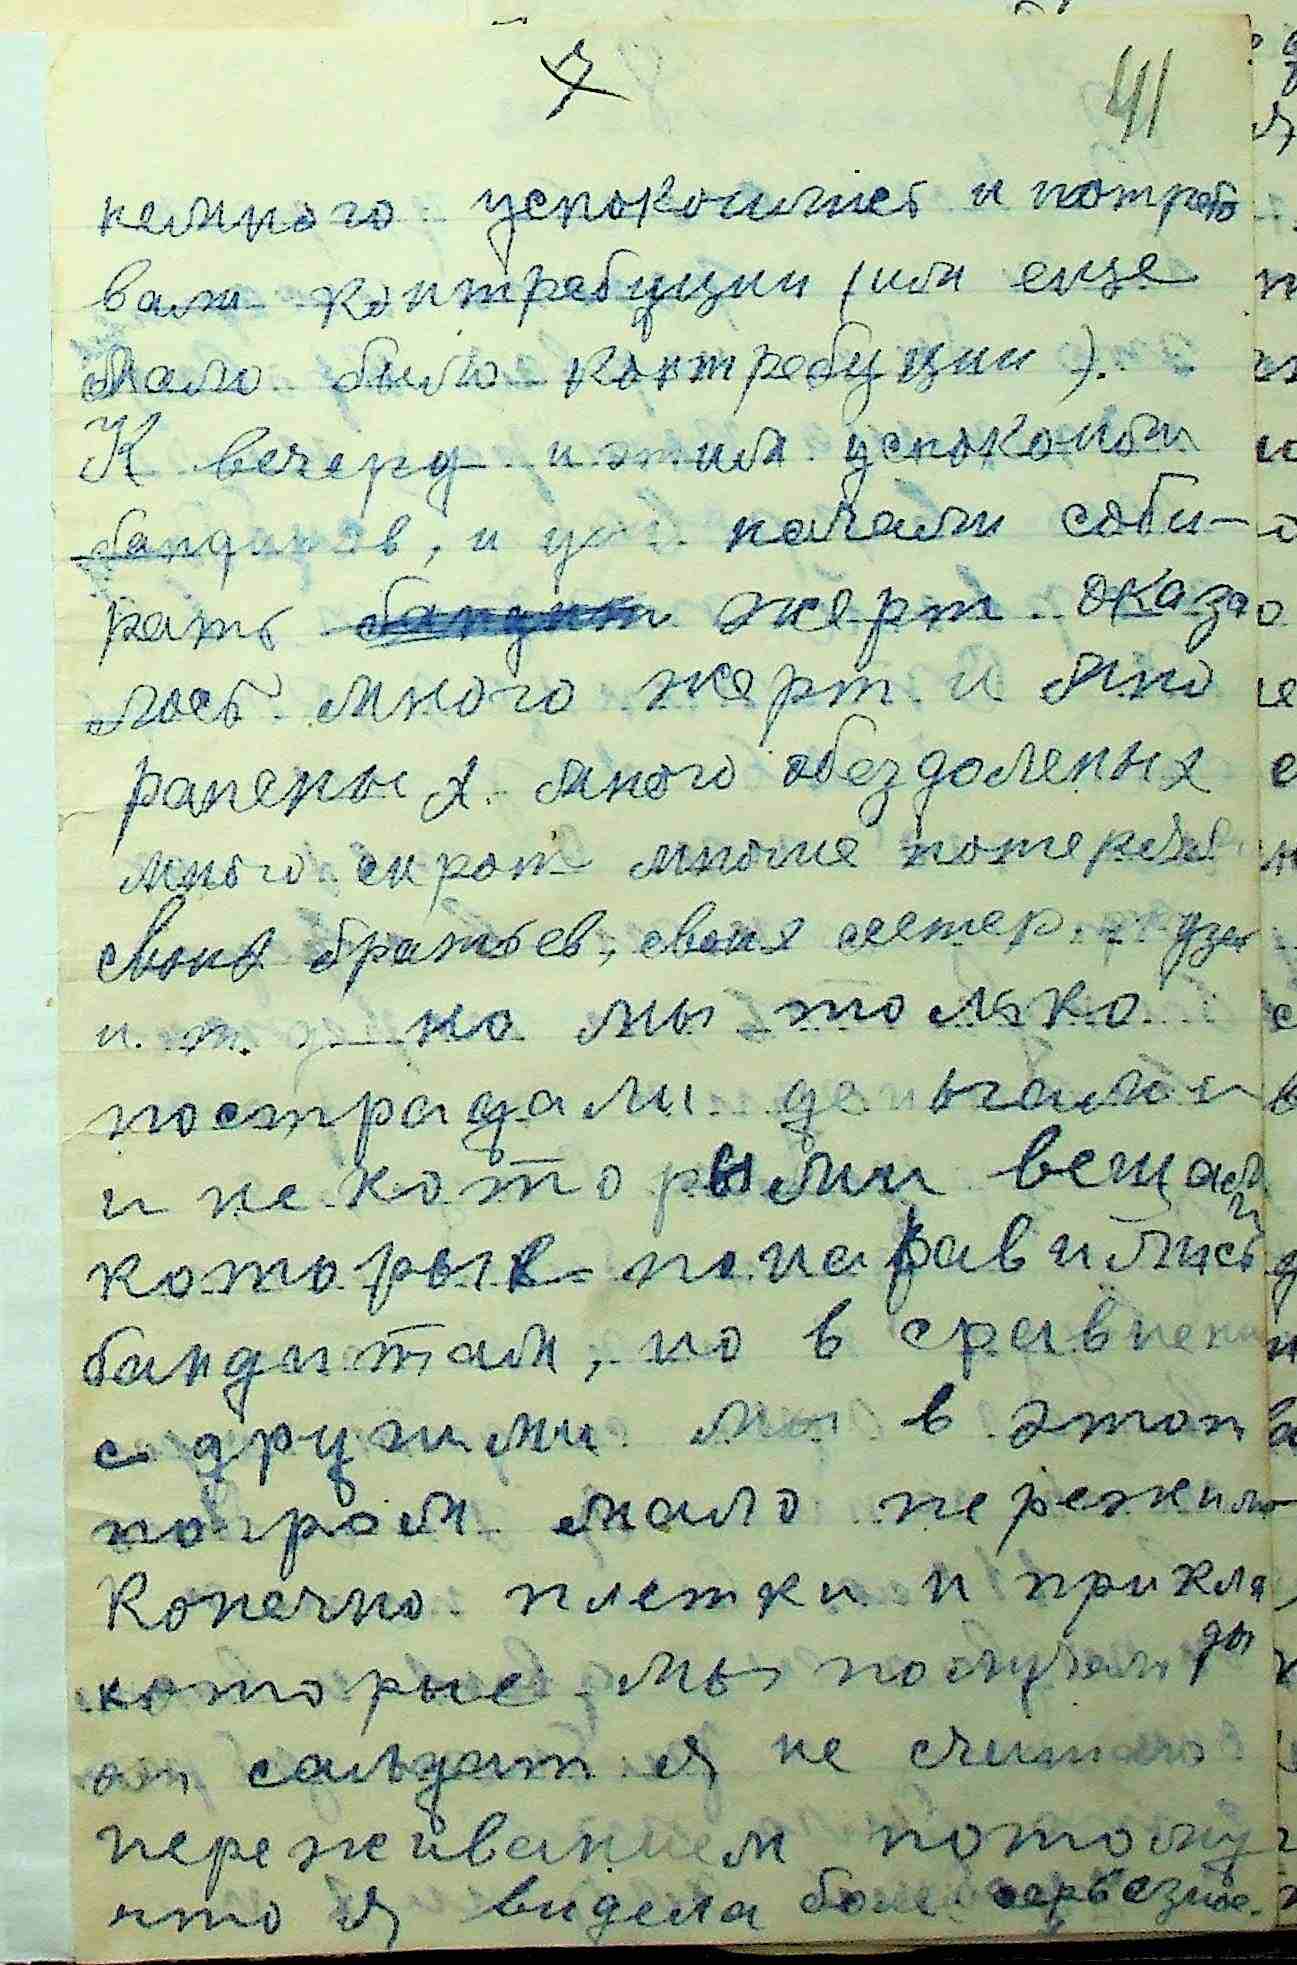 7 41
немного успокоились и потребо
вали контребуции (им еще
мало было контребуции).
К вечеру и этим успокоили
бандитов, и уже начали соби-
рать бандит жерт. оказа
лось много жерт и мно
раненых много обездоленых
много сирот многие потеряли
своих братьев, своих сестер
и т. д. но мы только
пострадали деньгами
и некоторыми вещами
которые понаравились
бандитам, но в сравнени
с другими мы в этот
погром мало пережили
Конечно плетки и приклады
которые мы получали
от сальдат я не считаю
переживанием потому
что я видела боле серьезное.